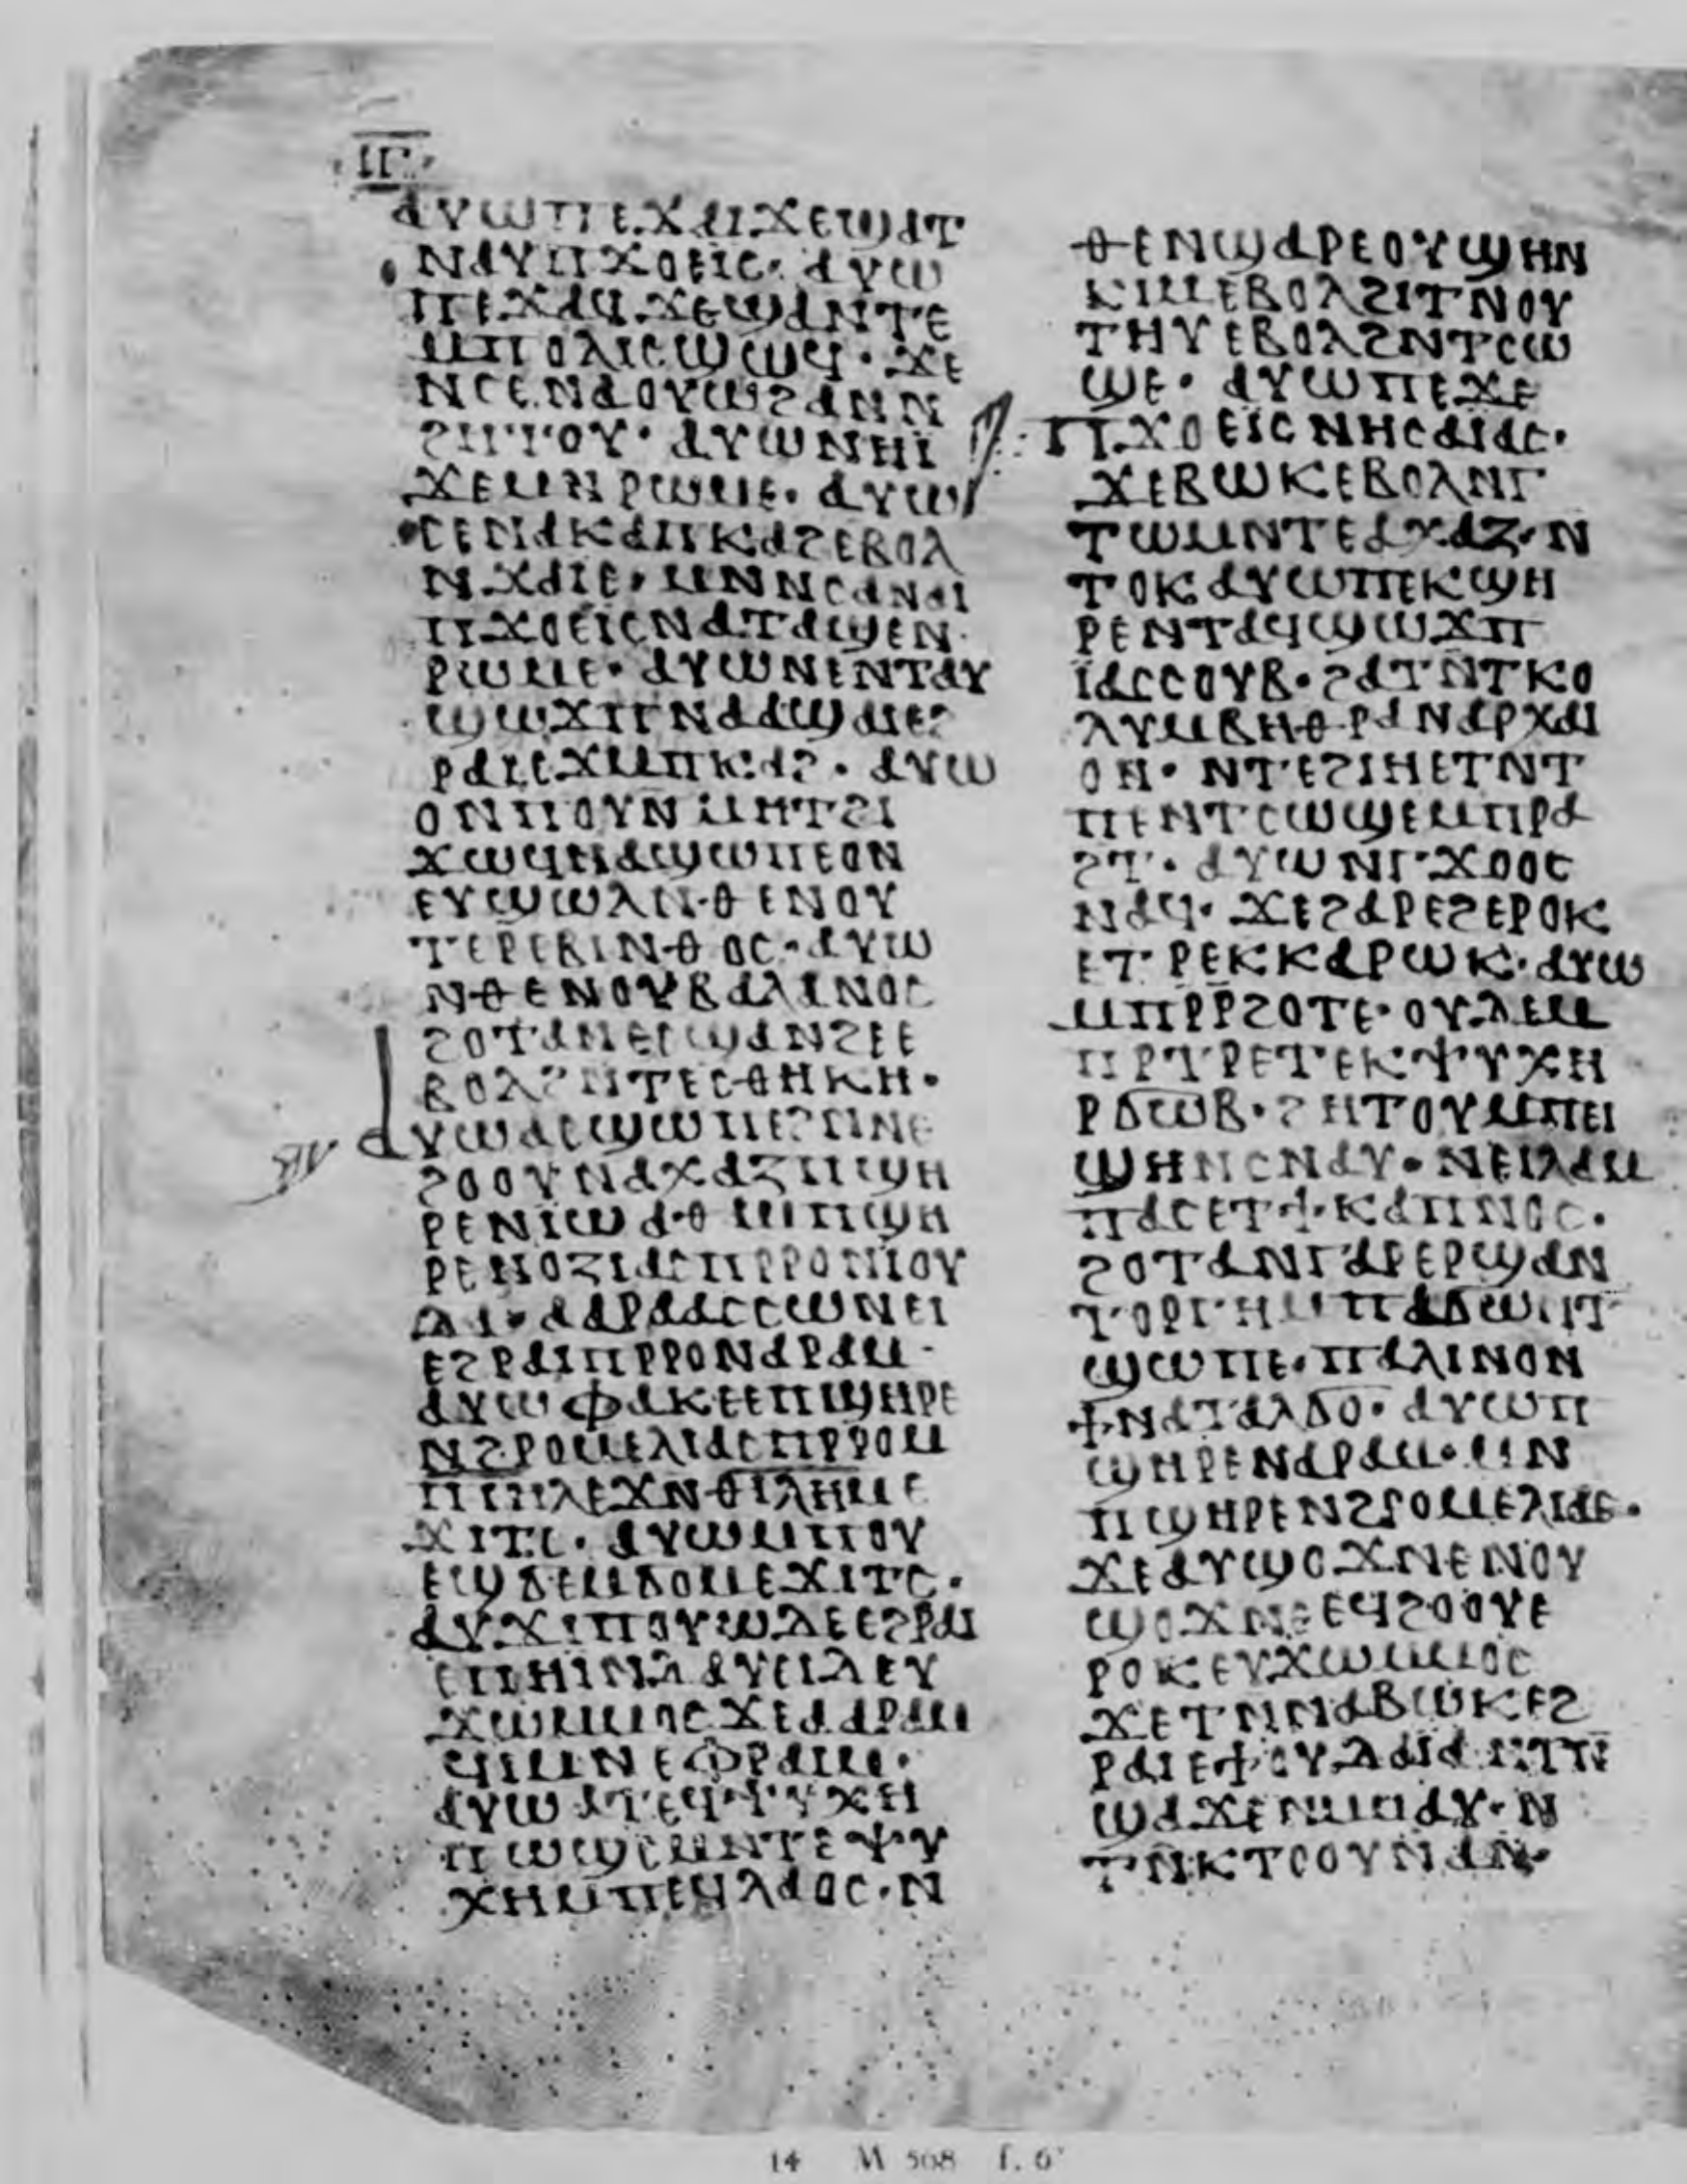 ⲓⲅ
ⲁⲩⲱⲡⲉϫⲁⲓϫⲉϣⲁⲧ
ⲛⲁⲩⲡϫⲟⲉⲓⲥ· ⲁⲩⲱ
ⲡⲉϫⲁϥϫⲉϣⲁⲛⲧⲉ
ⲙⲡⲟⲗⲓⲥϣⲱϥ· ϫⲉ
ⲛⲥⲉⲛⲁⲟⲩⲱϩⲁⲛⲛ
ϩⲏⲧⲟⲩ· ⲁⲩⲱⲛⲏⲓ̈
ϫⲉⲙⲛⲣⲱⲙⲉ· ⲁⲩⲱ
ⲥⲉⲛⲁⲕⲁⲡⲕⲁϩⲉⲃⲟⲗ
ⲛϫⲁⲓⲉ· ⲙⲛⲛⲥⲁⲛⲁⲓ
ⲡϫⲟⲉⲓⲥⲛⲁⲧⲁϣⲉⲛ
ⲣⲱⲙⲉ· ⲁⲩⲱⲛⲉⲛⲧⲁⲩ
ϣⲱϫⲡⲛⲁⲁϣⲁⲓⲉϩ
ⲣⲁⲓⲉϫⲙⲡⲕⲁϩ· ⲁⲩⲱ
ⲟⲛⲡⲟⲩⲛⲙⲏⲧϩⲓ
ϫⲱϥⲛⲁϣⲱⲡⲉⲟⲛ
ⲉⲩϣⲱⲗⲛ·ⲑⲉⲛⲟⲩ
ⲧⲉⲣⲉⲃⲓⲛⲑⲟⲥ·ⲁⲩⲱ
ⲛⲑⲉⲛⲟⲩⲃⲁⲗⲓⲛⲟⲥ
ϩⲟⲧⲁⲛⲉⲥϣⲁⲛϩⲉⲉ
ⲃⲟⲗϩⲛⲧⲉⲥⲑⲏⲕⲏ·
ⲁⲩⲱⲁⲥϣⲱⲡⲉϩⲛⲛⲉ
ϩⲟⲟⲩⲛⲁⲭⲁⲍⲡϣⲏ
ⲣⲉⲛⲓⲱⲁⲑⲁⲙⲡϣⲏ
ⲣⲉⲛⲟⲍⲓⲁⲥⲡⲣⲣⲟⲛⲓⲟⲩ
ⲇⲁ· ⲁⲁⲣⲁⲁⲥⲥⲱⲛⲉⲓ
ⲉϩⲣⲁⲓⲡⲣⲣⲟⲛⲁⲣⲁⲙ·
ⲁⲩⲱⲫⲁⲕⲉⲉⲡϣⲏⲣⲉ
ⲛϩⲣⲟⲙⲉⲗⲓⲁⲥⲡⲣⲣⲟⲙ
ⲡⲓⲏⲗⲉϫⲛⲑⲓⲗⲏⲙⲉ
ϫⲓⲧⲥ· ⲁⲩⲱⲙⲡⲟⲩ
ⲉϣϭⲉⲙϭⲟⲙⲉϫⲓⲧⲥ·
ⲁⲩϫⲓⲡⲟⲩⲱⲇⲉⲉϩⲣⲁⲓ
ⲉⲡⲏⲓⲛⲇⲁⲩⲉⲓⲇⲉⲩ
ϫⲱⲙⲙⲟⲥϫⲉⲁⲁⲣⲁⲙ
ϥⲓⲙⲛⲉⲫⲣⲁⲓⲙ·
ⲁⲩⲱⲁⲧⲉϥⲯⲩⲭⲏ
ⲡⲱϣⲥⲙⲛⲧⲉⲯⲩ
ⲭⲏⲙⲡⲉϥⲗⲁⲟⲥ·ⲛ
ⲑⲉⲛϣⲁⲣⲉⲟⲩϣⲏⲛ
ⲕⲓⲙⲉⲃⲟⲗϩⲓⲧⲛⲟⲩ
ⲧⲏⲩⲉⲃⲟⲗϩⲛⲧⲥⲱ
ϣⲉ· ⲁⲩⲱⲡⲉϫⲉ
ⲡϫⲟⲉⲓⲥⲛⲏⲥⲁⲓⲁⲥ·
ϫⲉⲃⲱⲕⲉⲃⲟⲗⲛⲅ
ⲧⲱⲙⲛⲧⲉⲁⲭⲁⲍ·ⲛ
ⲧⲟⲕⲁⲩⲱⲡⲉⲕϣⲏ
ⲣⲉⲛⲧⲁϥϣⲱϫⲡ
ⲓ̈ⲁⲥⲥⲟⲩⲃ·ϩⲁⲧⲛⲧⲕⲟ
ⲗⲩⲙⲃⲏⲑⲣⲁⲛⲁⲣⲭⲁⲓ
ⲟⲛ· ⲛⲧⲉϩⲓⲏⲉⲧⲛⲧ
ⲡⲉⲛⲧⲥⲱϣⲉⲙⲡⲣⲁ
ϩⲧ· ⲁⲩⲱⲛⲅϫⲟⲟⲥ
ⲛⲁϥ· ϫⲉϩⲁⲣⲉϩⲉⲣⲟⲕ
ⲉⲧⲣⲉⲕⲕⲁⲣⲱⲕ·ⲁⲩⲱ
ⲙⲡⲣⲣϩⲟⲧⲉ·ⲟⲩⲇⲉⲙ
ⲡⲣⲧⲣⲉⲧⲉⲕⲯⲩⲭⲏ
ⲣϭⲱⲃ·ϩⲏⲧⲟⲩⲙⲡⲉⲓ
ϣⲏⲛⲥⲛⲁⲩ·ⲛⲉⲓⲗⲁⲙ
ⲡⲁⲥⲉⲧϯⲕⲁⲡⲛⲟⲥ·
ϩⲟⲧⲁⲛⲅⲁⲣⲉⲣϣⲁⲛ
ⲧⲟⲣⲅⲏⲙⲡⲁϭⲱⲛⲧ
ϣⲱⲡⲉ·ⲡⲁⲗⲓⲛⲟⲛ
ϯⲛⲁⲧⲁⲗϭⲟ· ⲁⲩⲱⲡ
ϣⲏⲣⲉⲛⲁⲣⲁⲙ·ⲙⲛ
ⲡϣⲏⲣⲉⲛϩⲣⲟⲙⲉⲗⲓⲁⲥ·
ϫⲉⲁⲩϣⲟϫⲛⲉⲛⲟⲩ
ϣⲟϫⲛⲉⲉϥϩⲟⲟⲩⲉ
ⲣⲟⲕⲉⲩϫⲱⲙⲙⲟⲥ
ϫⲉⲧⲛⲛⲁⲃⲱⲕⲉϩ
ⲣⲁⲓⲉϯⲟⲩⲇⲁⲓⲁⲛⲧⲛ
ϣⲁϫⲉⲛⲙⲙⲁⲩ·ⲛ
ⲧⲛⲕⲧⲟⲟⲩⲛⲁⲛ·
14 M 568 f. 6ᵛ